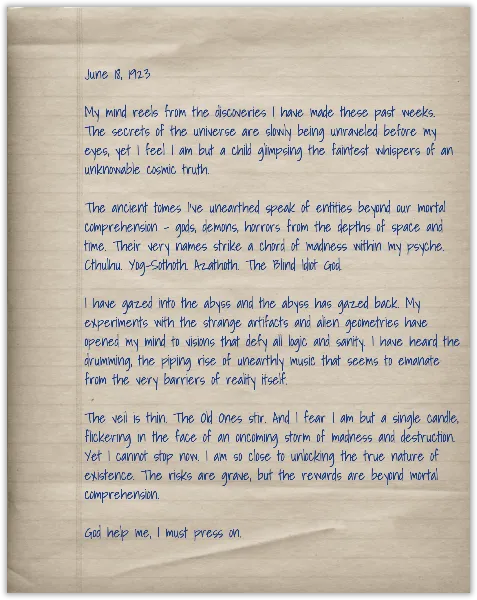 June 18, 1923
My mind reels from the discoveries I have made these past weeks.
The secrets of the universe are slowly being unraveled before my
eyes, yet I feel I am but a child glimpsing the faintest whispers of an
unknowable cosmic truth.
The ancient tomes I've unearthed speak of entities beyond our mortal
comprehension - gods, demons, horrors from the depths of space and
time. Their very names strike a chord of madness within my psyche.
Cthulhu. Yog-Sothoth. Azathoth. The Blind Idiot God.
I have gazed into the abyss and the abyss has gazed back. My
experiments with the strange artifacts and alien geometries have
opened my mind to visions that defy all logic and sanity. I have heard the
drumming, the piping rise of unearthly music that seems to emanate
from the very barriers of reality itself.
The veil is thin. The Old Ones stir. And I fear I am but a single candle,
flickering in the face of an oncoming storm of madness and destruction.
Yet I cannot stop now. I am so close to unlocking the true nature of
existence. The risks are grave, but the rewards are beyond mortal
comprehension.
God help me, I must press on.